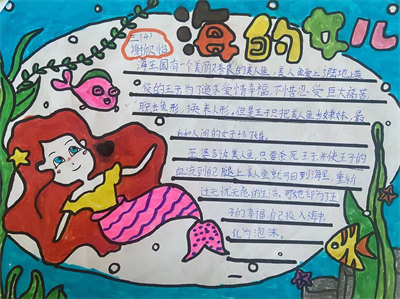 海的女儿
三(4)
海王国有一个美丽善良的美人鱼。美人鱼爱上了陆地上
的王子,为了追求爱情幸福,不惜忍受巨大痛苦,
脱去鱼形,换来人形。但是王子只把美人鱼当妹妹,最
后和人间的女子结了婚。
巫婆告诉美人鱼,只要杀死王子,并使王子的
血流到自己腿上,美人鱼就可回到海里,重新
过无忧无虑的生活。可她却为了王
子的幸福,自己投入海中,
化为泡沫。